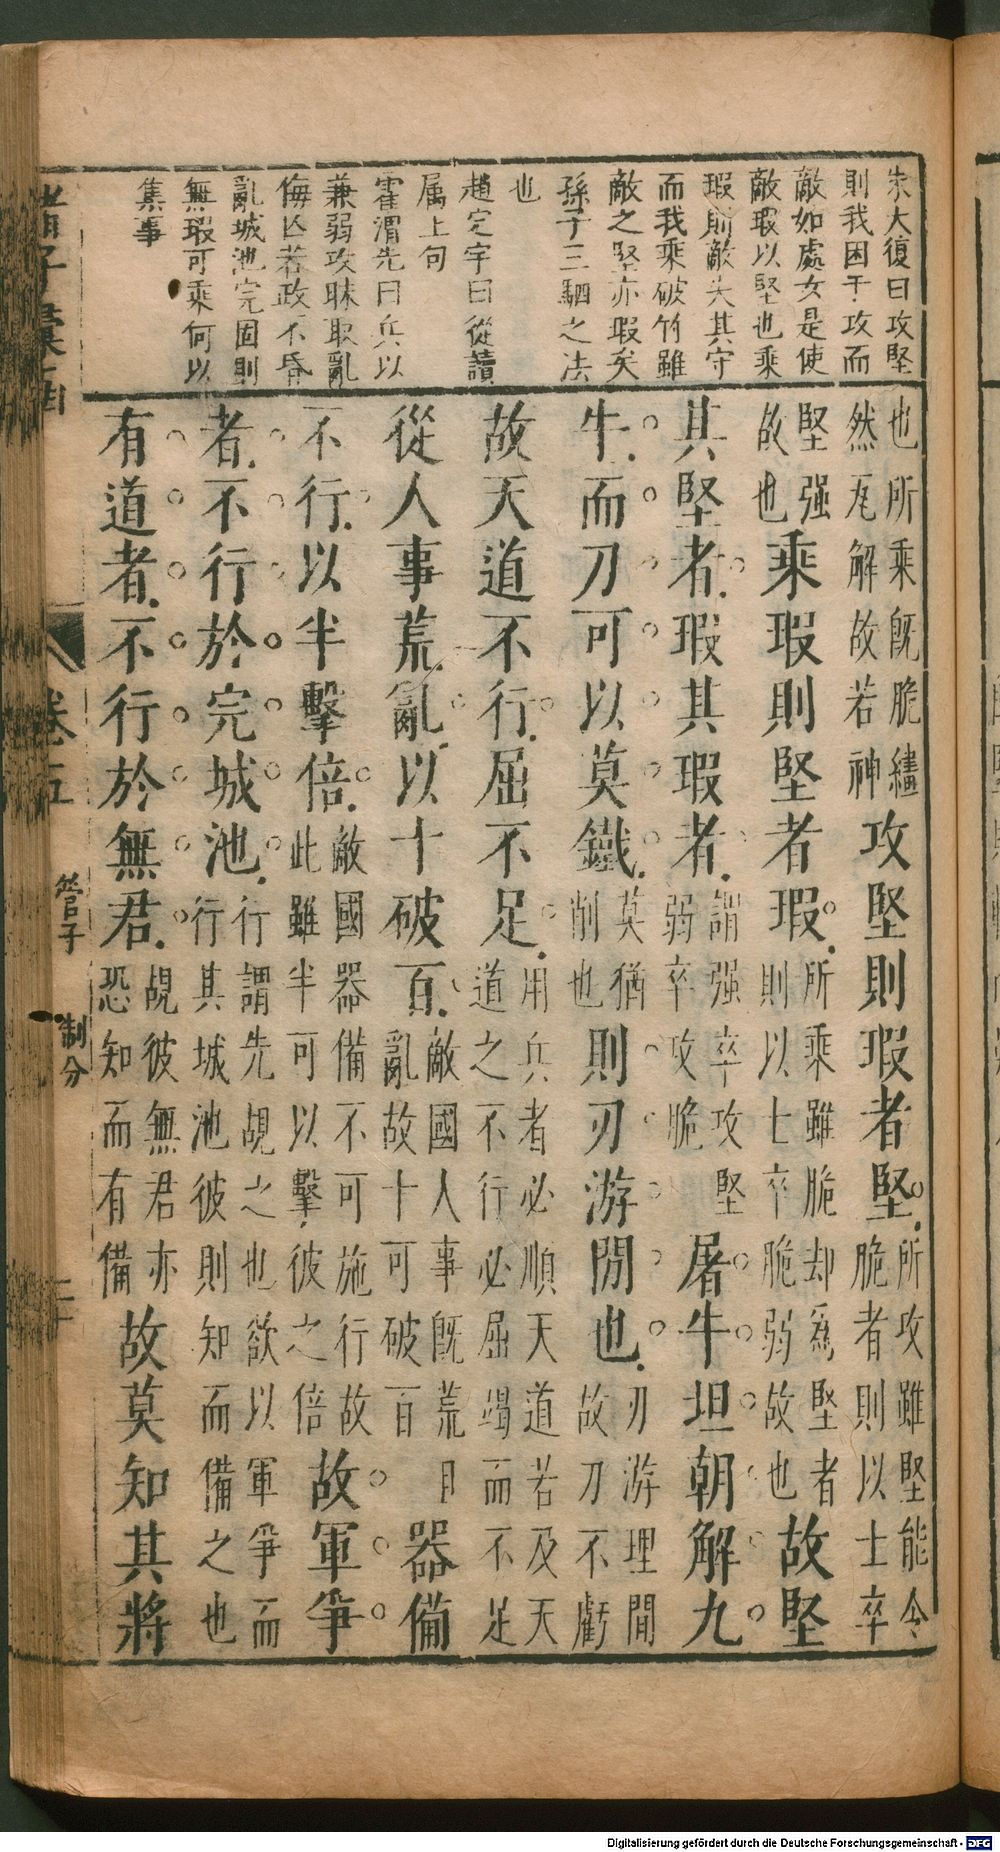 朱大復曰攻堅
則我困于攻而
敵如處女是使
敵瑕以堅也乘
瑕則敵失其守
而我乘破竹雖
敵之堅亦瑕矣
孫子三駟之法
也
趙定宇曰從讀
属上句
霍渭先曰兵以
兼弱攻昧取亂
侮亡若政不昏
亂城池完固則
無瑕可乘何以
集事
也所乘旣脆繣
然瓦解故若神
攻堅則瑕者堅
所攻雖堅能令
脆者則以士卒
堅强
故也
乘瑕則堅者瑕
所乘雖脆却爲堅者
則以士卒脆弱故也
故堅
其堅者瑕其瑕者
謂强卒攻堅
弱卒攻脆
屠牛坦朝解九
牛而刀可以莫鐵
莫猶
削也
則刃游閒也
刃游理閒
故刀不虧
故天道不行屈不足
用兵者必順天道若及天
道之不行必屈竭而不足
從人事荒亂以十破百
敵國人事旣荒目
亂故十可破百
器備
不行以半擊倍
敵國器備不可施行故
此雖半可以擊彼之倍
故軍爭
者不行於完城池
行謂先覘之也欲以軍爭而
行其城池彼則知而備之也
有道者不行於無君
覘彼無君亦
恐知而有備
故莫知其將
卷五
管子
制分
二十
Digitalisierung gefördert durch die Deutsche Forschungsgemeinschaft - DFG